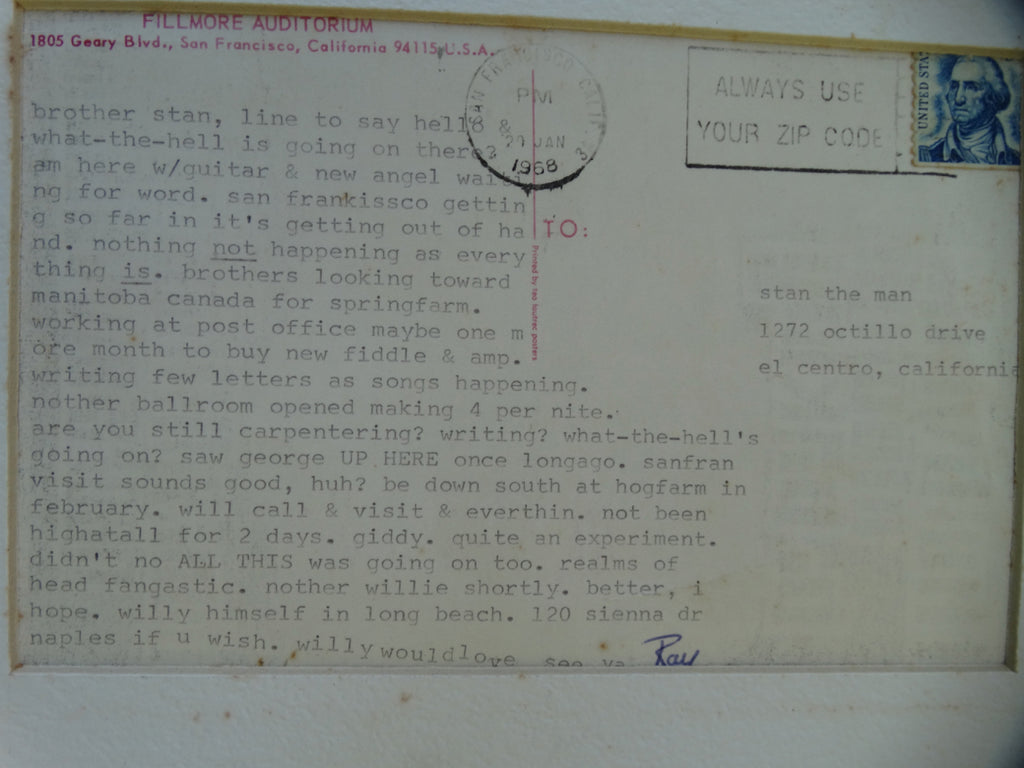 FILLMORE AUDITORIUM
1805 Geary Blvd., San Francisco, California 94115 U.S.A.
SAN FRANCISCO CALIF
PM
29 JAN
1968
ALWAYS USE
YOUR ZIP CODE
UNITED STA
brother stan, line to say hello &
what-the-hell is going on there?
am here w/guitar & new angel waiti
ng for word. san frankissco gettin
g so far in it's getting out of ha
nd. nothing not happening as every
thing is. brothers looking toward
manitoba canada for springfarm.
working at post office maybe one m
ore month to buy new fiddle & amp.
writing few letters as songs happening.
nother ballroom opened making 4 per nite.
are you still carpentering? writing? what-the-hell's
going on? saw george UP HERE once longago. sanfran
visit sounds good, huh? be down south at hogfarm in
february. will call & visit & everthin. not been
highatall for 2 days. giddy. quite an experiment.
didn't no ALL THIS was going on too. realms of
head fangastic. nother willie shortly. better, i
hope. willy himself in long beach. 120 sienna dr
naples if u wish. willywouldlove see ya Ray
TO:
Printed by tea lautrec posters
stan the man
1272 octillo drive
el centro, california